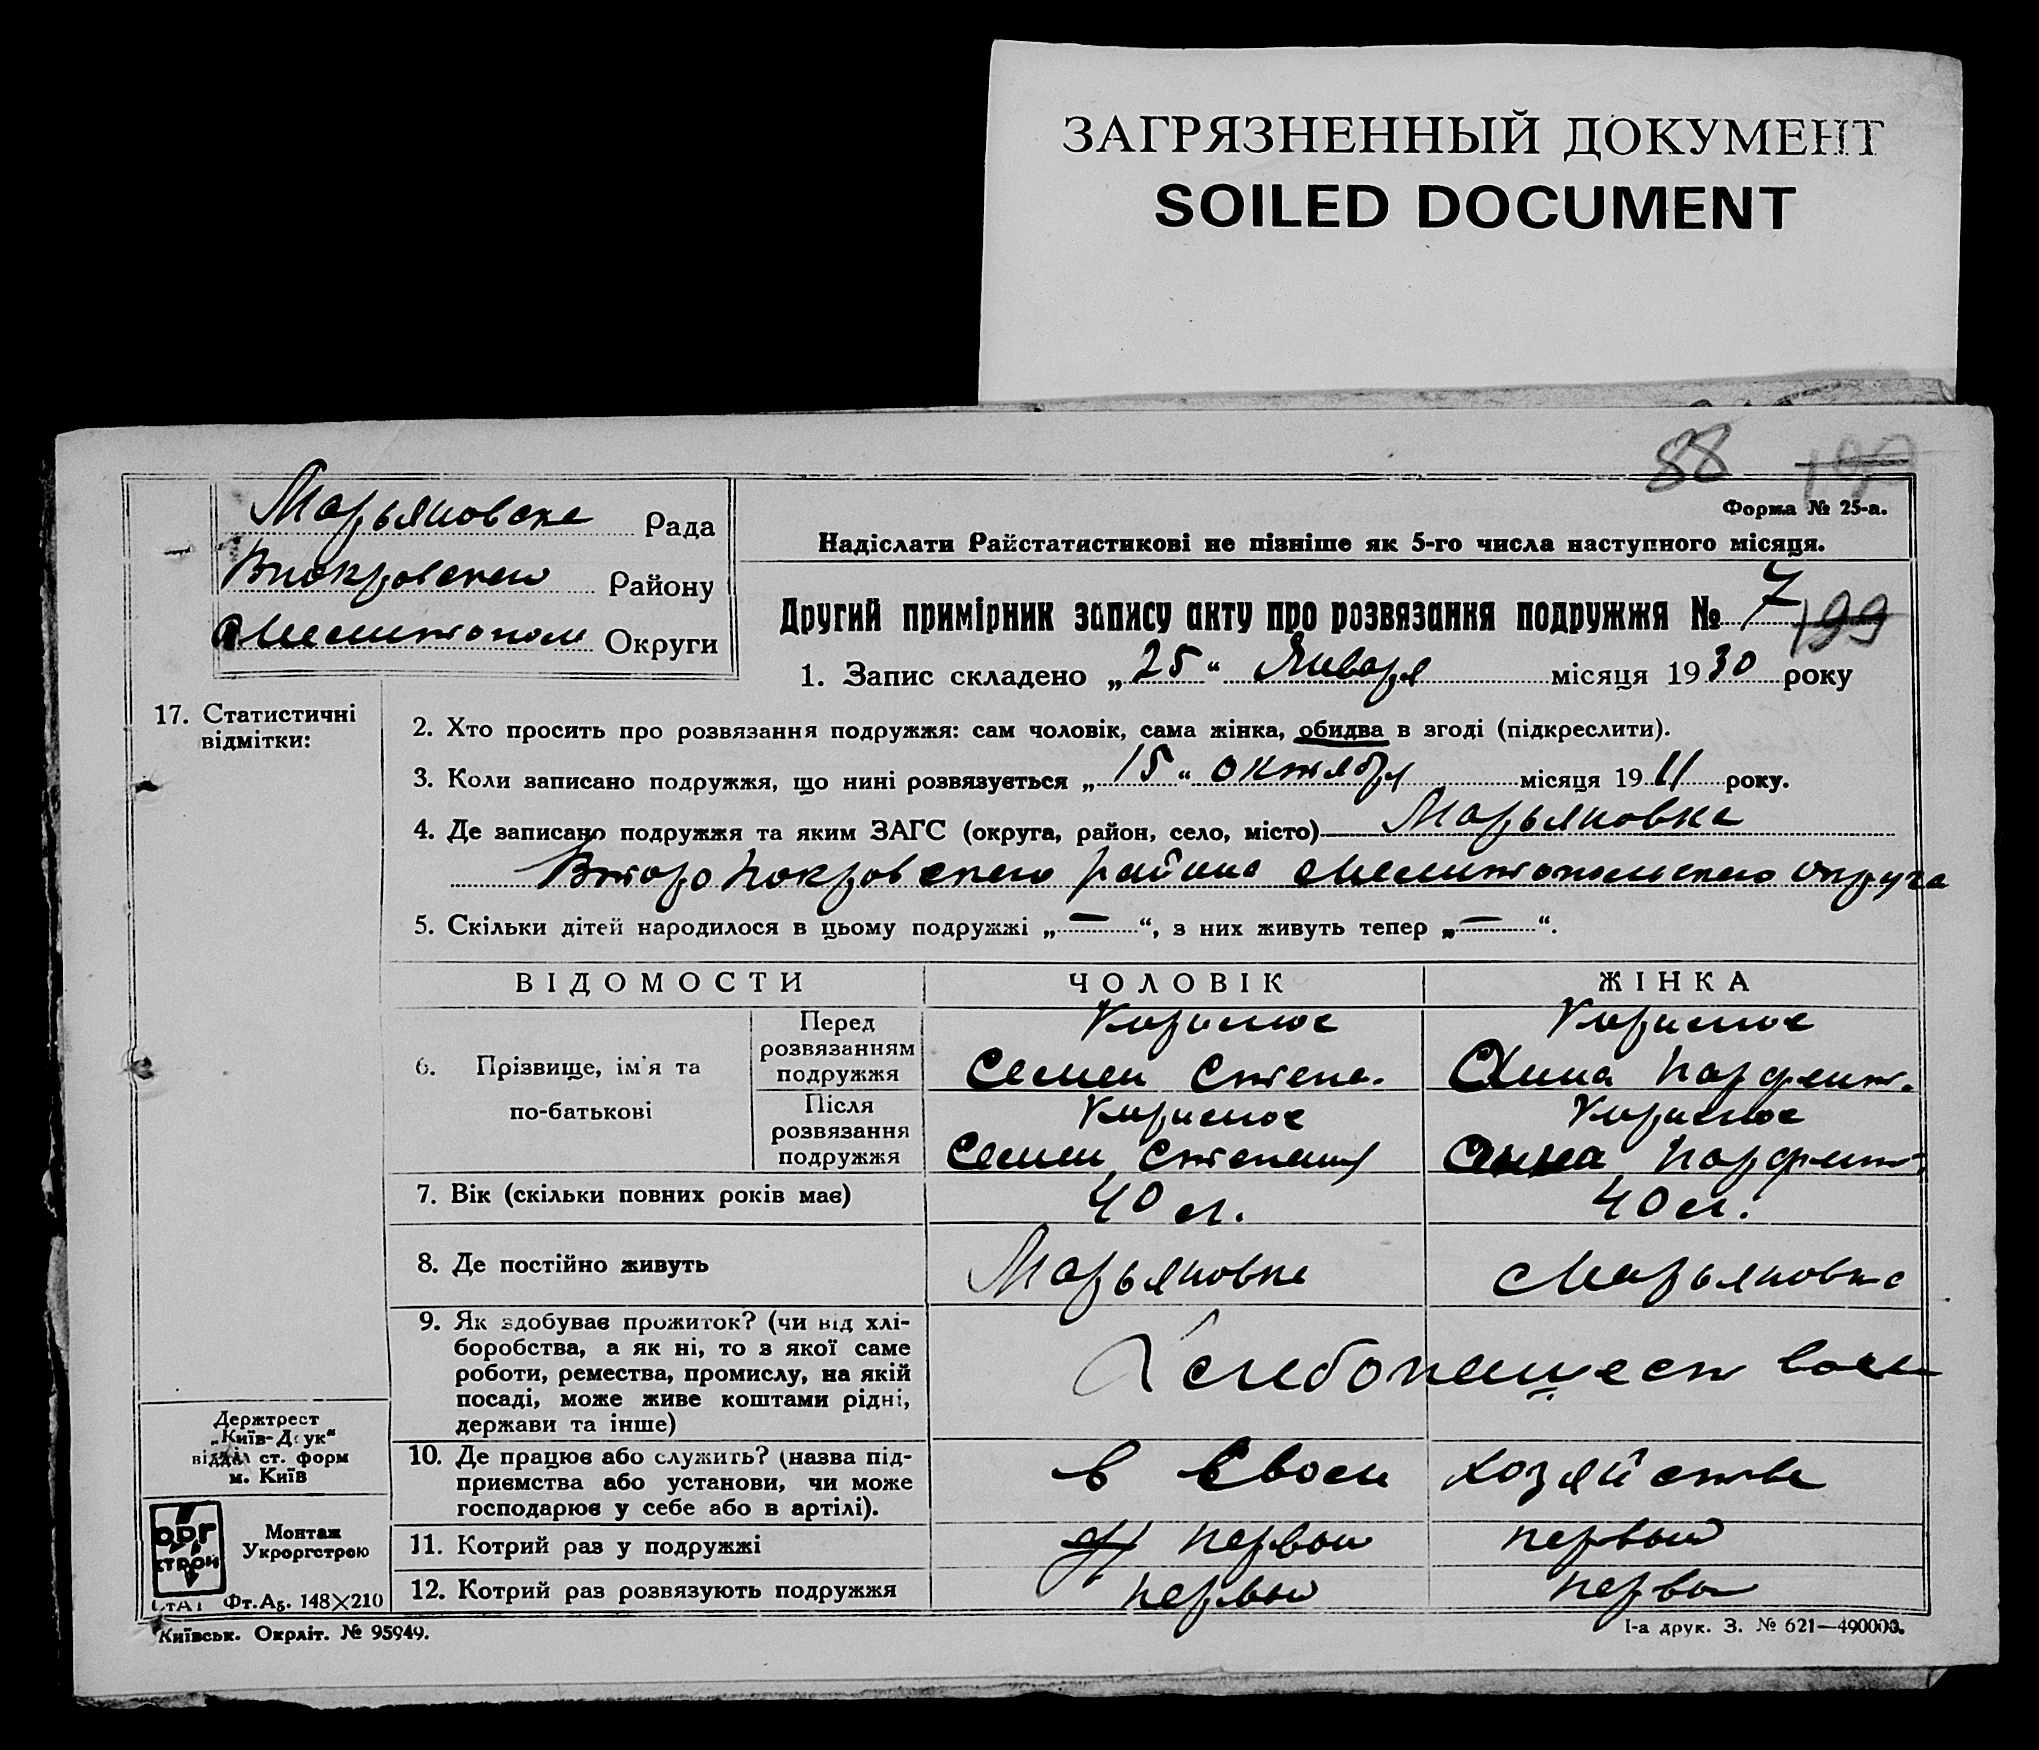 ЗАГРЯЗНЕННЫЙ ДОКУМЕНТ
SOILED DOCUMENT
88 199
Форма № 25-а.
Марьяновска Рада
Впокровского Району
Мелитопол Округи
Надіслати Райстатистикові не пізніше як 5-го числа наступного місяця.
Другий примірник запису акту про розвязання подружжя № 7 199
1. Запис складено „25“ Января місяця 1930 року
17. Статистичні
відмітки:
2. Хто просить про розвязання подружжя: сам чоловік, сама жінка, обидва в згоді (підкреслити).
3. Коли записано подружжя, що нині розвязується „15“ октября місяця 1911 року.
4. Де записано подружжя та яким ЗАГС (округа, район, село, місто) Марьяновка
Второпокровского района Мелитопольского округа
5. Скільки дітей народилося в цьому подружжі „—“, з них живуть тепер „—“.
ВІДОМОСТИ ЧОЛОВІК ЖІНКА
6. Прізвище, ім'я та
по-батькові
Перед
розвязанням
подружжя
Семен Степа.
Анна Парфент.
Після
розвязання
подружжя
Семен Степаны
Анна Парфент.
7. Вік (скільки повних років має) 40 л. 40 л.
8. Де постійно живуть Марьяновка Марьяновка
9. Як здобуває прожиток? (чи від хлі-
боробства, а як ні, то з якої саме
роботи, ремества, промислу, на якій
посаді, може живе коштами рідні,
держави та інше)
Хлебопашеством
10. Де працює або служить? (назва під-
приємства або установи, чи може
господарює у себе або в артілі).
в своем хозяйстве
11. Котрий раз у подружжі первый первый
12. Котрий раз розвязують подружжя первы первы
Держтрест
„Київ-Друк“
відділ ст. форм
м. Київ
ОРГ
СТРОЙ
Монтаж
Укроргстрою
Фт.А5. 148×210
Київськ. Окрліт. № 95949.
1-а друк. З. № 621—490000.